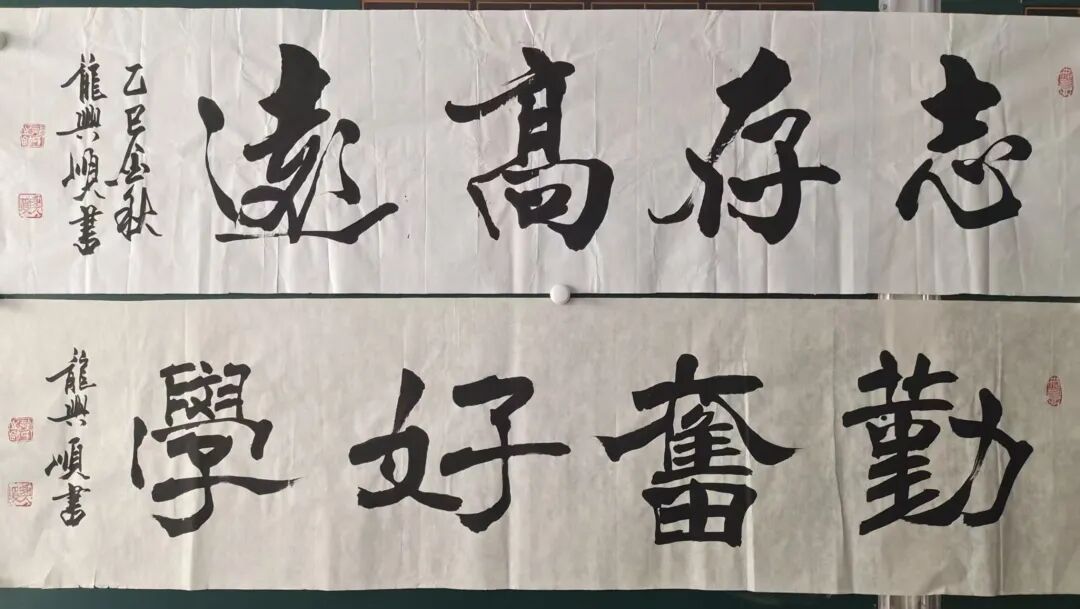 志存高遠
乙巳金秋
龍興順書
勤奮好學
龍興順書